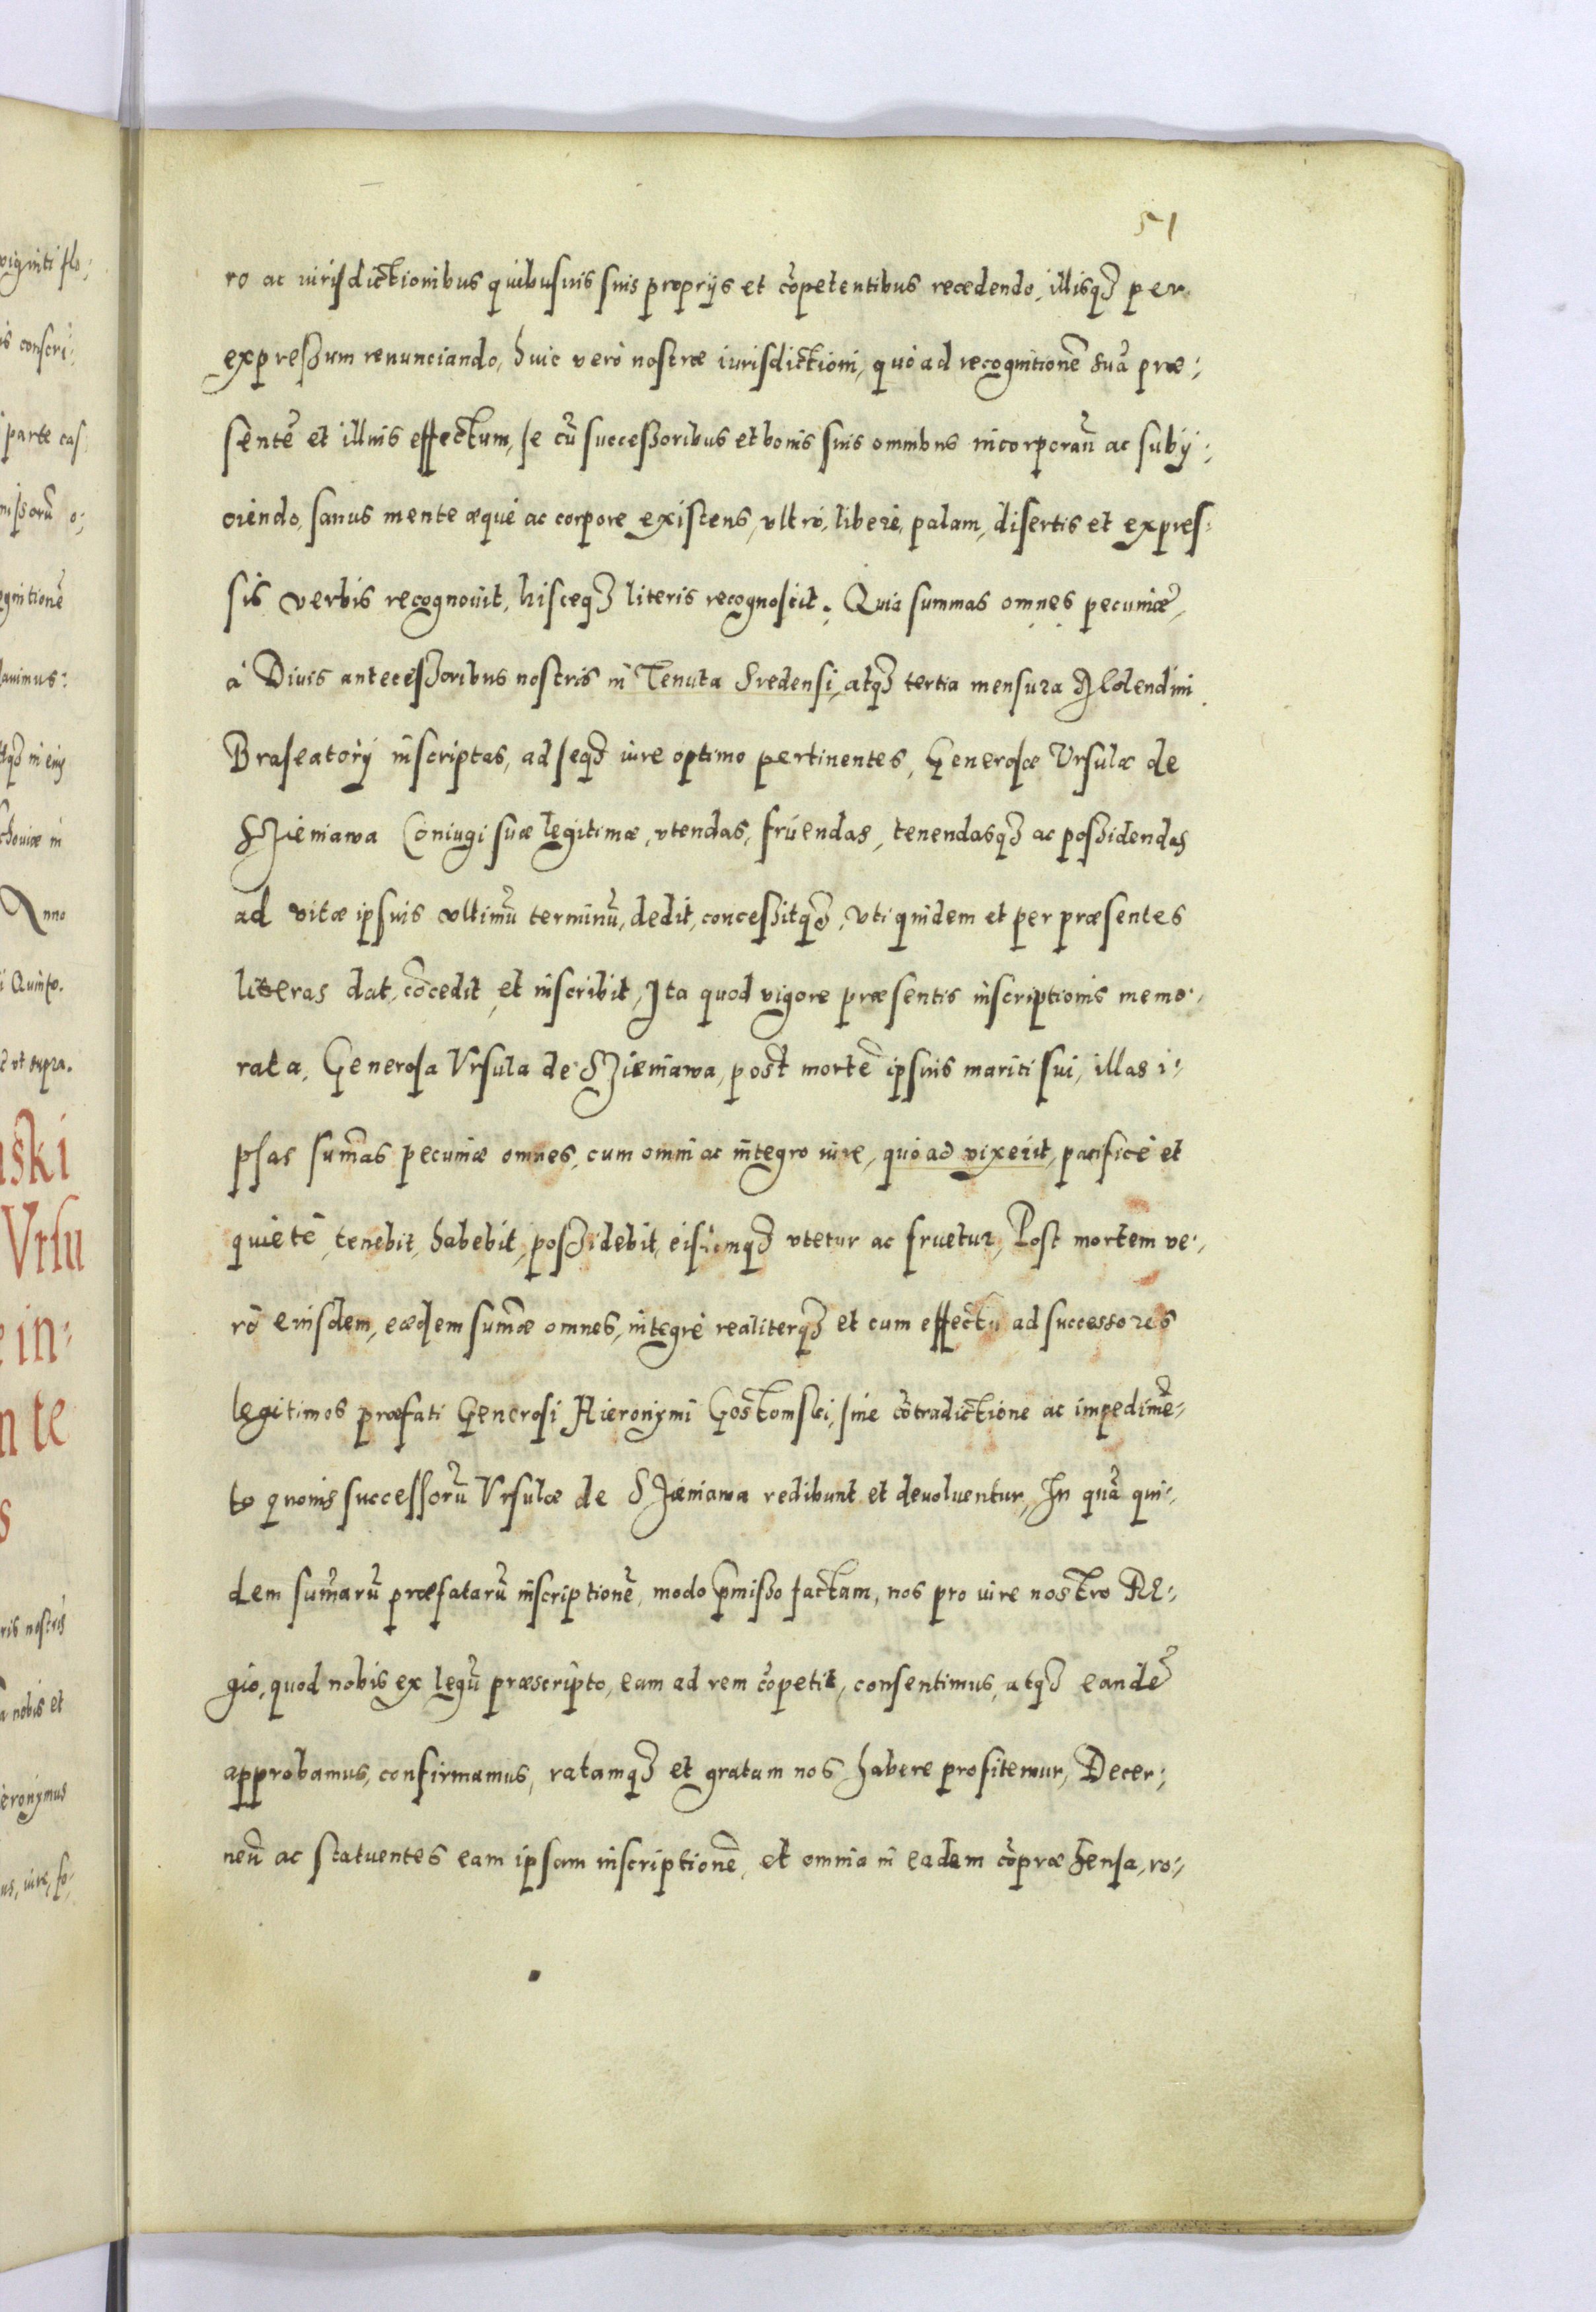 51
ro ac iurisdictionibus quibusuis suis proprijs et cõpetentibus recedendo, illisqȝ per
expreßum renunciando, huic verò nostræ iurisdictioni, quò ad recognitionẽ suã præ:
sentẽ et illius effectum, se cũ succeßoribus et bonis suis omnibus incorporañ ac subij:
ciendo, sanus mente æquè ac corpore existens, vltrò, liberè, palam, disertis et expres:
sis verbis recognouit, hisceqȝ literis recognoscit. Quia summas omnes pecuniæ,
à Diuis anteceßoribus nostris in Tenuta Sredensi, atqȝ tertia mensura Molendini
Braseatorij inscriptas, ad seqȝ iure optimo pertinentes, Generosæ Vrsulæ de
SZieniawa Coniugi suæ legitimæ, vtendas, fruendas, tenendasqȝ ac poßidendas
ad vitæ ipsius vltimũ terminũ, dedit, conceßitqȝ, vti quidem et per præsentes
literas dat, cõcedit, et inscribit, Ita quod vigore præsentis inscriptionis memo:
rata, Generosa Vrsula de SZieniawa, post mortẽ ipsius mariti sui, illas i:
psas sum̃as pecuniæ omnes, cum omni ac integro iure, quò ad vixerit, pacificè et
quietè, tenebit, habebit, poßidebit, eisdemqȝ vtetur ac fruetur, Post mortem ve:
rò eiusdem, eædem sum̃æ omnes, integrè realiterqȝ et cum effectu ad successores
legitimos præfati Generosi Hieronymi Gostomski, sine cõtradictione ac impedimẽ:
to quouis successorũ Vrsulæ de SZieniawa redibunt et deuoluentur, In quã qui:
dem sum̃arũ præfatarũ inscriptionẽ, modo p̃mißo factam, nos pro iure nostro Re:
gio, quod nobis ex legũ præscripto, eam ad rem cõpetit, consentimus, atqȝ eandẽ
approbamus, confirmamus, ratamqȝ et gratam nos habere profitemur, Decer:
neñ ac statuentes eam ipsam inscriptionẽ, et omnia in eadem cõpræhensa, ro: